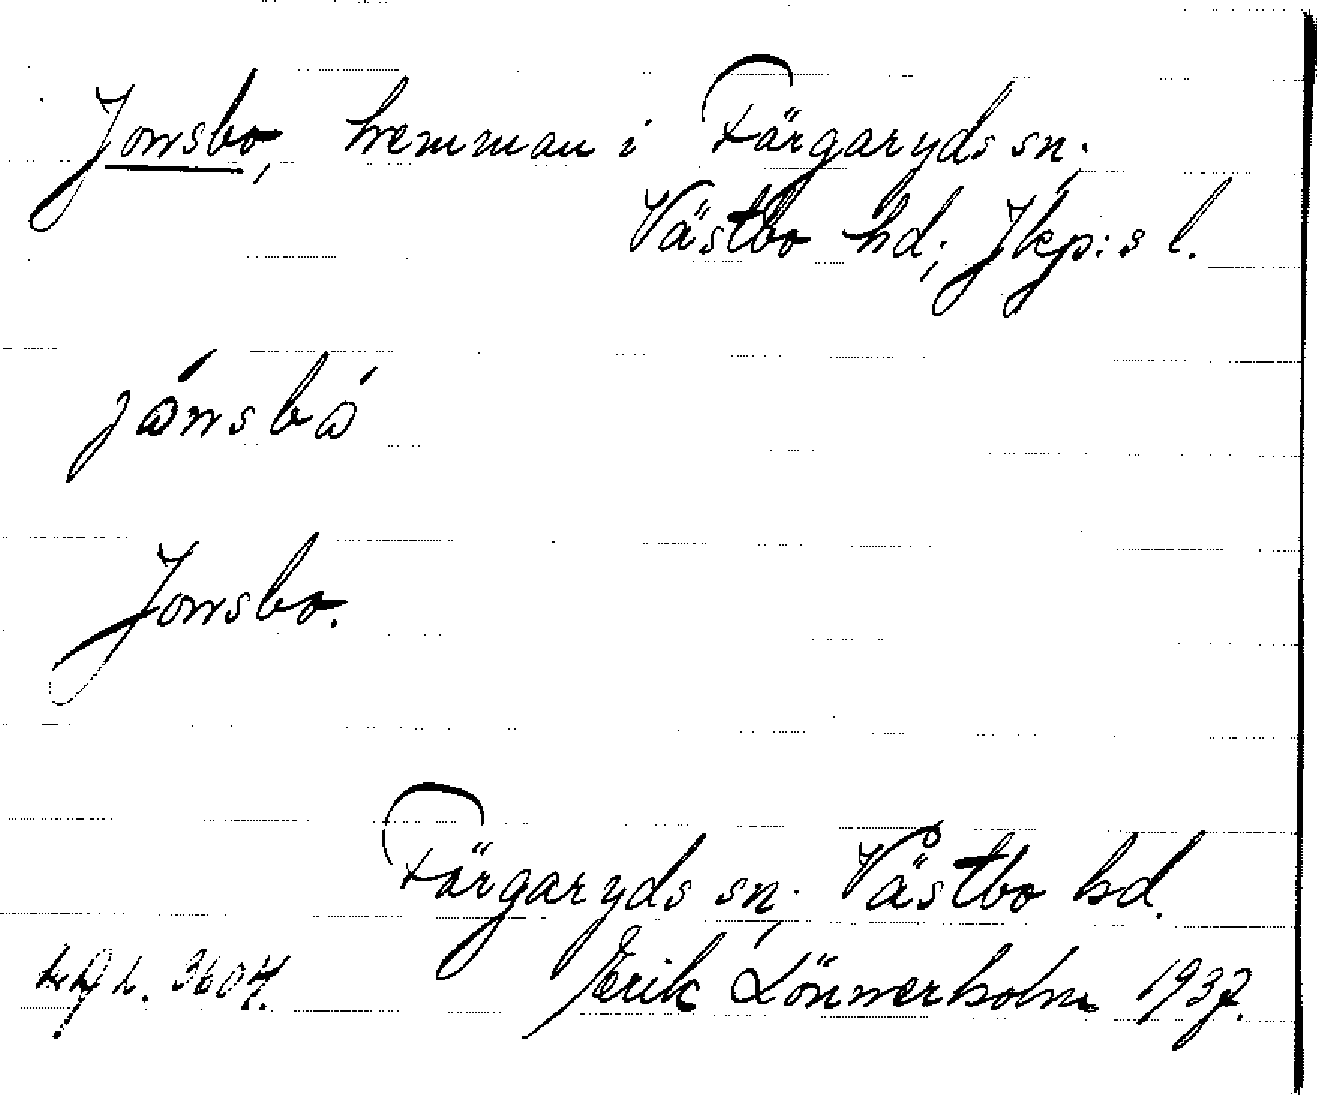 Jonsbo, hemman i Färgaryds sn;
Västbo hd; Jkp:s l.
jónsbó
Jonsbo.
Färgaryds sn; Västbo hd.
3604.
Erik Lönnerholm 1937.